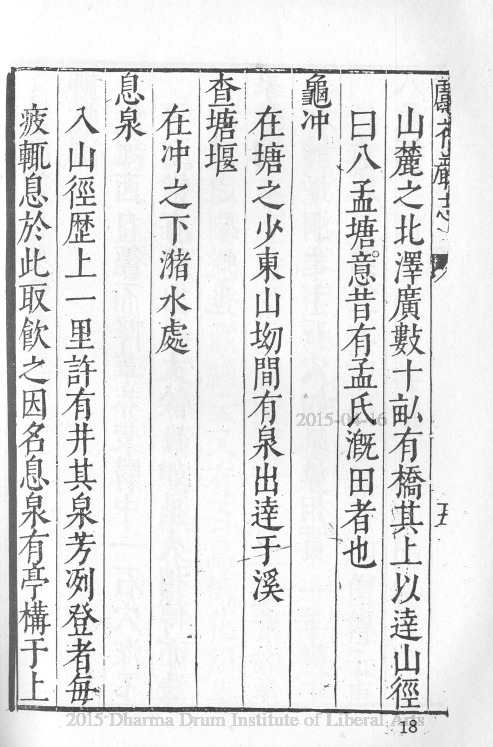 山麓之北澤廣數十畝有橋其上以達山徑
曰八孟塘意昔有孟氏溉田者也
龜冲
在塘之少東山坳間有泉出達于溪
查塘堰
在冲之下潴水處
息泉
入山徑歷上一里許有井其泉芳冽登者每
疲輒息於此取飲之因名息泉有亭構于上
五
18
2015 Dharma Drum Institute of Liberal Arts